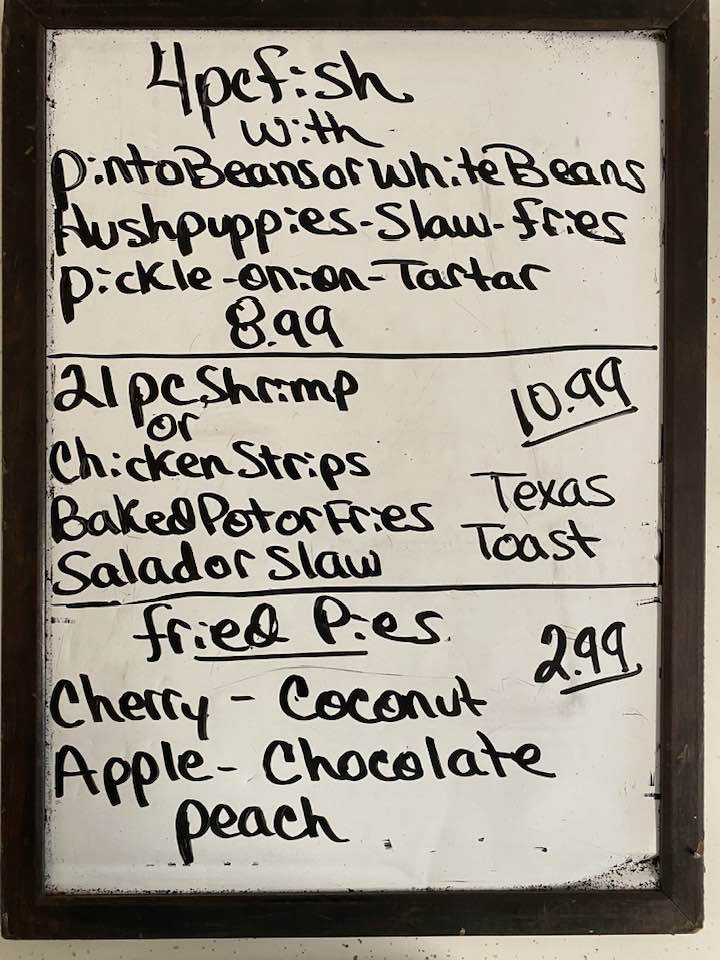 4pc fish
with
Pinto Beans or White Beans
Hushpuppies-Slaw-fries
pickle-onion-Tartar
8.99
21 pc Shrimp
10.99
or
Chicken Strips
Texas
Baked Pot or Fries
Toast
Salad or Slaw
fried Pies
2.99
Cherry - Coconut
Apple - Chocolate
peach